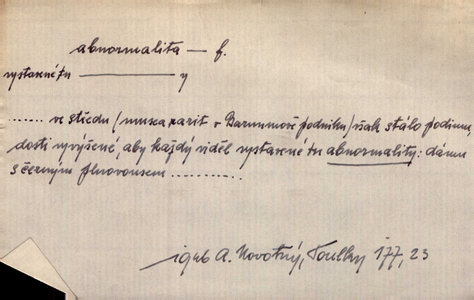 abnormalita — f.
vystavené tu ——— y
....... ve středu / musea rarit v Barnumově podniku / však stálo podium,
dosti vyvýšené, aby každý viděl vystavené tu abnormality: dámu
s černým plnovousem ............
A. Novotný, Toulky 177, 23